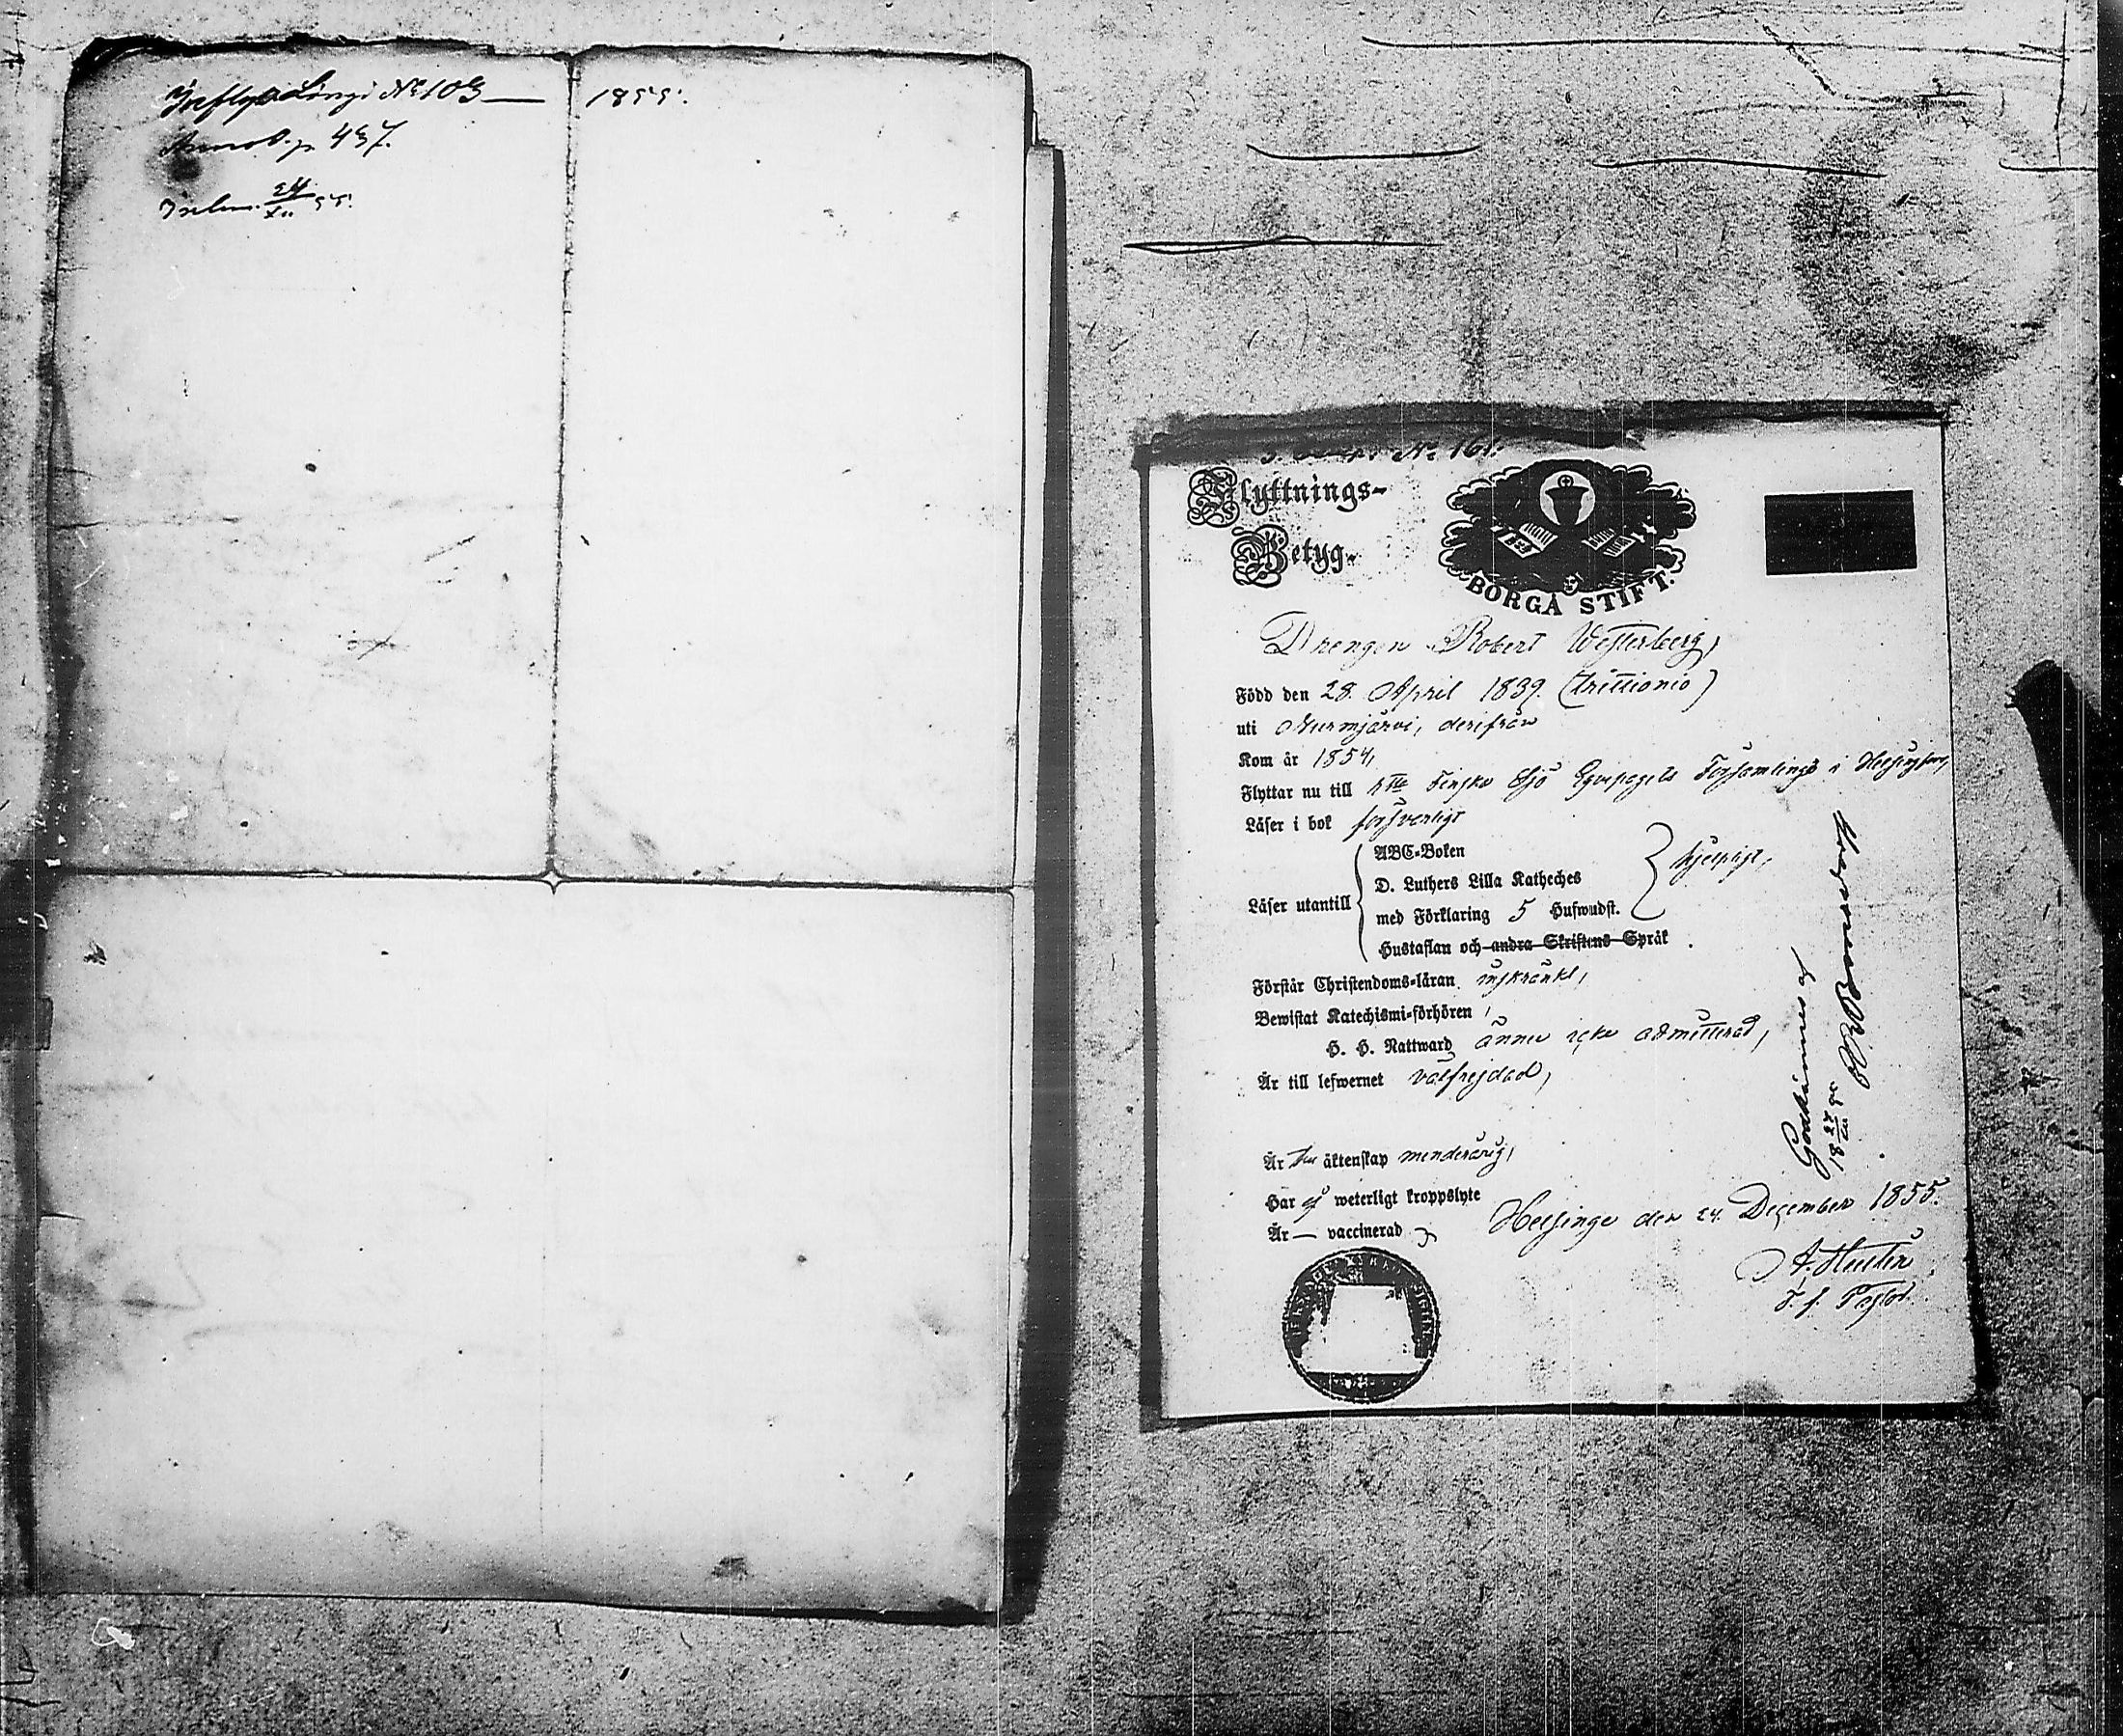 Inflyttn. Längd No 103 — 1855.
p 437.
Inlem. 24/XII 55.
No 161.
Flyttnings-
Betyg.
BORGÅ STIFT.
Drengen Robert Westerberg,
Född den 28. April 1839. (trettionio)
uti Nurmjärvi, derifrån
Kom år 1854,
Flyttar nu till 1sta Finska Sjö Equipagets Församling i Helsingfors,
Läser i bok försvarligt
Läser utantill
ABC-Boken
D. Luthers Lilla Katheches
med Förklaring 5 Hufwudst.
Hustaflan och andra Skriftens Språk
hjelpligt,
Förstår Christendoms-läran inskränkt,
Bewistat Katechismi-förhören
H. H. Nattward ännu icke admitterad,
Är till lefwernet välfrejdad,
Är äktenskap minderårig,
Har ej weterligt kroppslyte
Är — vaccinerad
Helsinge den 24. December 1855.
A. Hertén
v. f. Pastor.
Godkännes af
18 27/XII 55
Bonsdorff